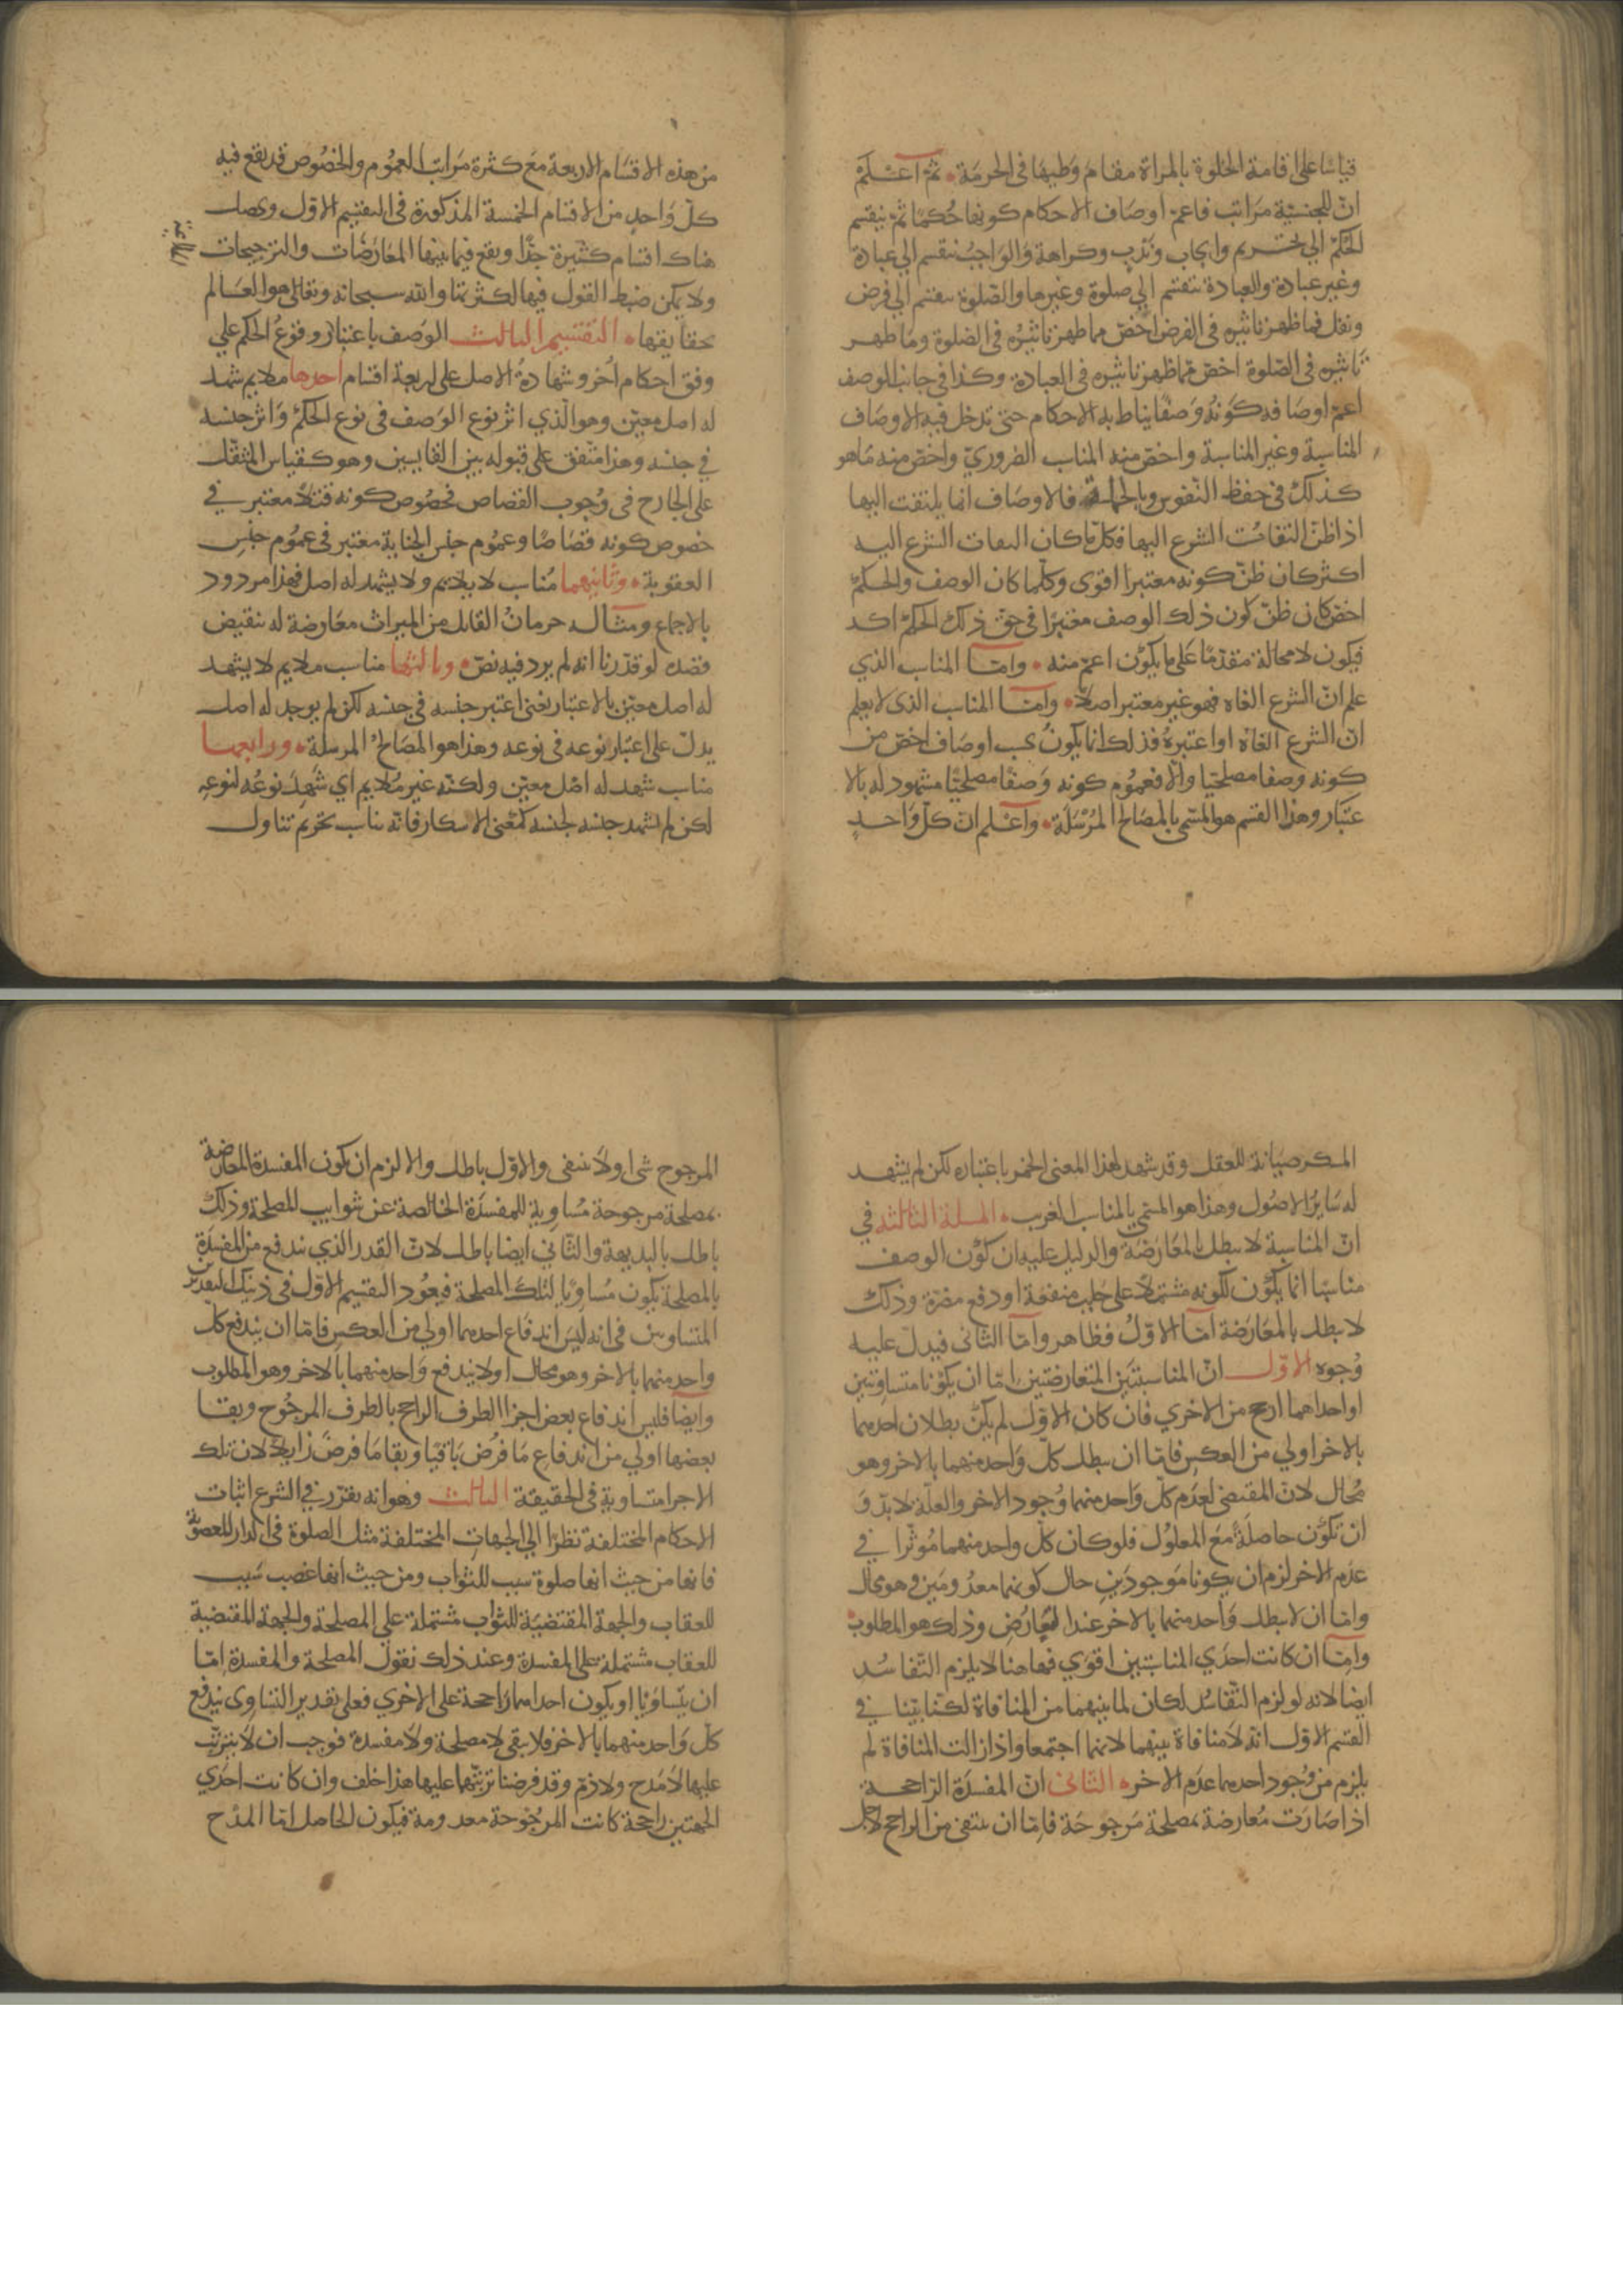 قياسا على اقامة الخلوة بالمراة مقام وطيها في الحرمة • ثم اعلم
ان للجنسية مراتب فاعم اوصاف الاحكام كونها حكما ثم ينقسم
الحكم الي تحريم وايجاب وندب وكراهة والواجب ينقسم الي عبادة
وغير عبادة والعبادة تنقسم الي صلوة وغيرها والصلوة تنقسم الي فرض
ونفل فما ظهر تاثيره في الفرض اخص مما ظهر تاثيره في الصلوة وما ظهر
تاثيره في الصلوة اخص مما ظهر تاثيره في العبادة وكذا في جانب الوصف
اعم اوصافه كونه وصفا يناط به الاحكام حتى تدخل فيه الاوصاف
المناسبة وغير المناسبة واخص منه المناسب الضروري واخص منه ما هو
كذلك في حفظ النفوس وبالجملة فالاوصاف انما يلتفت اليها
اذا ظن التفات الشرع اليها فكل ما كان التفات الشرع اليه
اكثر كان ظن كونه معتبرا اقوى وكلما كان الوصف والحكم
اخص كان ظن كون ذلك الوصف معتبرا في حق ذلك الحكم اكد
فيكون لا محالة مقدما على ما يكون اعم منه • واما المناسب الذي
علم ان الشرع الغاه فهو غير معتبر اصلا • واما المناسب الذي لا يعلم
ان الشرع الغاه او اعتبره فذلك انما يكون بحسب اوصاف اخص من
كونه وصفا مصلحيا والا فعموم كونه وصفا مصلحيا مشهود له بالا
عتبار وهذا القسم هو المسمى بالمصالح المرسلة • واعلم ان كل واحد
من هذه الاقسام الاربعة مع كثرة مراتب العموم والخصوص قد يقع فيه
كل واحد من الاقسام الخمسة المذكورة في التقسيم الاول ويحصل
هناك اقسام كثيرة جدا ويقع فيما بينها المعارضات والترجيحات
ولا يمكن ضبط القول فيها لكثرتها والله سبحانه وتعالى هو العالم
بحقايقها • التقسيم الثالث الوصف باعتبار وقوع الحكم علي
وفق احكام اخر وشهادة الاصل على اربعة اقسام احدها ملايم شهد
له اصل معين وهو الذي اثر نوع الوصف في نوع الحكم واثر جنسه
في جنسه وهذا متفق على قبوله بين القايسين وهو كقياس المثقل
على الجارح في وجوب القصاص فخصوص كونه قتلا معتبر في
خصوص كونه قصاصا وعموم جنس الجناية معتبر في عموم جنس
العقوبة • وثانيهما مناسب لا يلايم ولا يشهد له اصل فهذا مردود
بالاجماع ومثاله حرمان القاتل من الميراث معارضة له بنقيض
قصده لو قدرنا انه لم يرد فيه نص • وثالثها مناسب ملايم لا يشهد
له اصل معين بالاعتبار يعني اعتبر جنسه في جنسه لكن لم يوجد له اصل
يدل على اعتبار نوعه في نوعه وهذا هو المصالح المرسلة • ورابعها
مناسب شهد له اصل معين ولكنه غير ملايم اي شهد نوعه لنوعه
لكن لم يشهد جنسه لجنسه كمعنى الاسكار فانه يناسب تحريم تناول
المسكر صيانة للعقل وقد شهد لهذا المعنى الخمر باعتباره لكن لم يشهد
له ساير الاصول وهذا هو المسمى بالمناسب الغريب • المسلة الثالثة في
ان المناسبة لا تبطل بالمعارضة والدليل عليه ان كون الوصف
مناسبا انما يكون لكونه مشتملا على جلب منفعة او دفع مضرة وذلك
لا يبطل بالمعارضة اما الاول فظاهر واما الثاني فيدل عليه
وجوه الاول ان المناسبتين المتعارضتين اما ان يكونا متساويتين
او احداهما ارجح من الاخري فان كان الاول لم يكن بطلان احدهما
بالاخر اولي من العكس فاما ان يبطل كل واحد منهما بالاخر وهو
محال لان المقتضي لعدم كل واحد منهما وجود الاخر والعلة لابد و
ان تكون حاصلة مع المعلول فلو كان كل واحد منهما موثرا في
عدم الاخر لزم ان يكونا موجودين حال كونهما معدومين وهو محال
واما ان لا يبطل واحد منهما بالاخر عند التعارض وذلك هو المطلوب •
واما ان كانت احدي المناسبتين اقوي فهاهنا لا يلزم التفاسد
ايضا لانه لو لزم التفاسد لكان لما بينهما من المنافاة لكنا بينا في
القسم الاول انه لا منافاة بينهما لانهما اجتمعا واذا زالت المنافاة لم
يلزم من وجود احدهما عدم الاخر • الثاني ان المفسدة الراجحة
اذا صارت معارضة بمصلحة مرجوحة فاما ان ينتفى من الراجح لاجل
المرجوح شي او لا ينتفى والاول باطل والا لزم ان يكون المفسدة المعارضة
بمصلحة مرجوحة مساوية للمفسدة الخالصة عن شوايب المصلحة وذلك
باطل بالبديهة والثاني ايضا باطل لان القدر الذي يندفع من المفسدة
بالمصلحة يكون مساويا لتلك المصلحة فيعود التقسيم الاول في ذينك القدرين
المتساويين في انه ليس اندفاع احدهما اولي من العكس فاما ان يندفع كل
واحد منهما بالاخر وهو محال او لا يندفع واحد منهما بالاخر وهو المطلوب
وايضا فليس اندفاع بعض اجزا الطرف الراجح بالطرف المرجوح وبقا
بعضها اولي من اندفاع ما فرض باقيا وبقا ما فرض زايلا لان تلك
الاجزا متساوية في الحقيقة الثالث وهو انه تقرر في الشرع اثبات
الاحكام المختلفة نظرا الي الجهات المختلفة مثل الصلوة في الدار المغصوبة
فانها من حيث انها صلوة سبب للثواب ومن حيث انها غصب سبب
للعقاب والجهة المقتضية للثواب مشتملة على المصلحة والجهة المقتضية
للعقاب مشتملة على المفسدة وعند ذلك نقول المصلحة والمفسدة اما
ان يتساويا او يكون احداهما راجحة على الاخري فعلى تقدير التساوى يندفع
كل واحد منهما بالاخر فلا يبقى لا مصلحة ولا مفسدة فوجب ان لا يترتب
عليها لا مدح ولا ذم وقد فرضنا ترتبهما عليها هذا خلف وان كانت احدي
الجهتين راجحة كانت المرجوحة معدومة فيكون الحاصل اما المدح